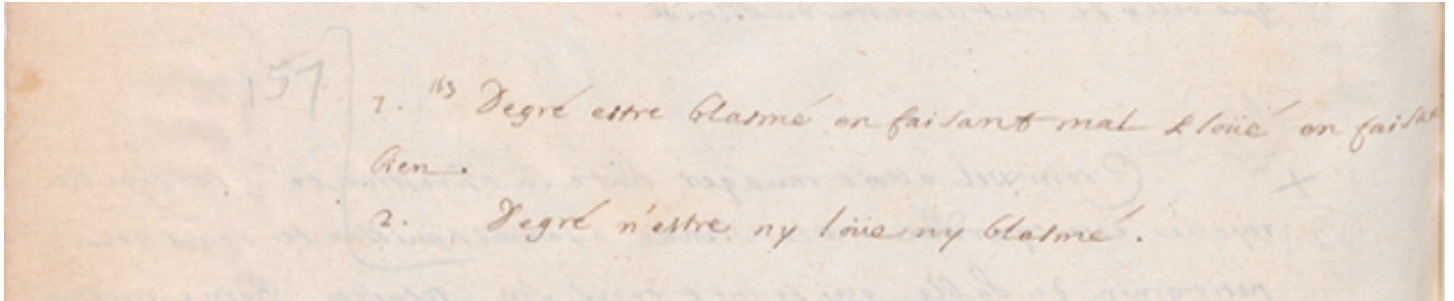 157
1. Degré estre blasmé en faisant mal & loüé en faisat
bien.
2. Degré n'estre ny loüe ny blasmé.